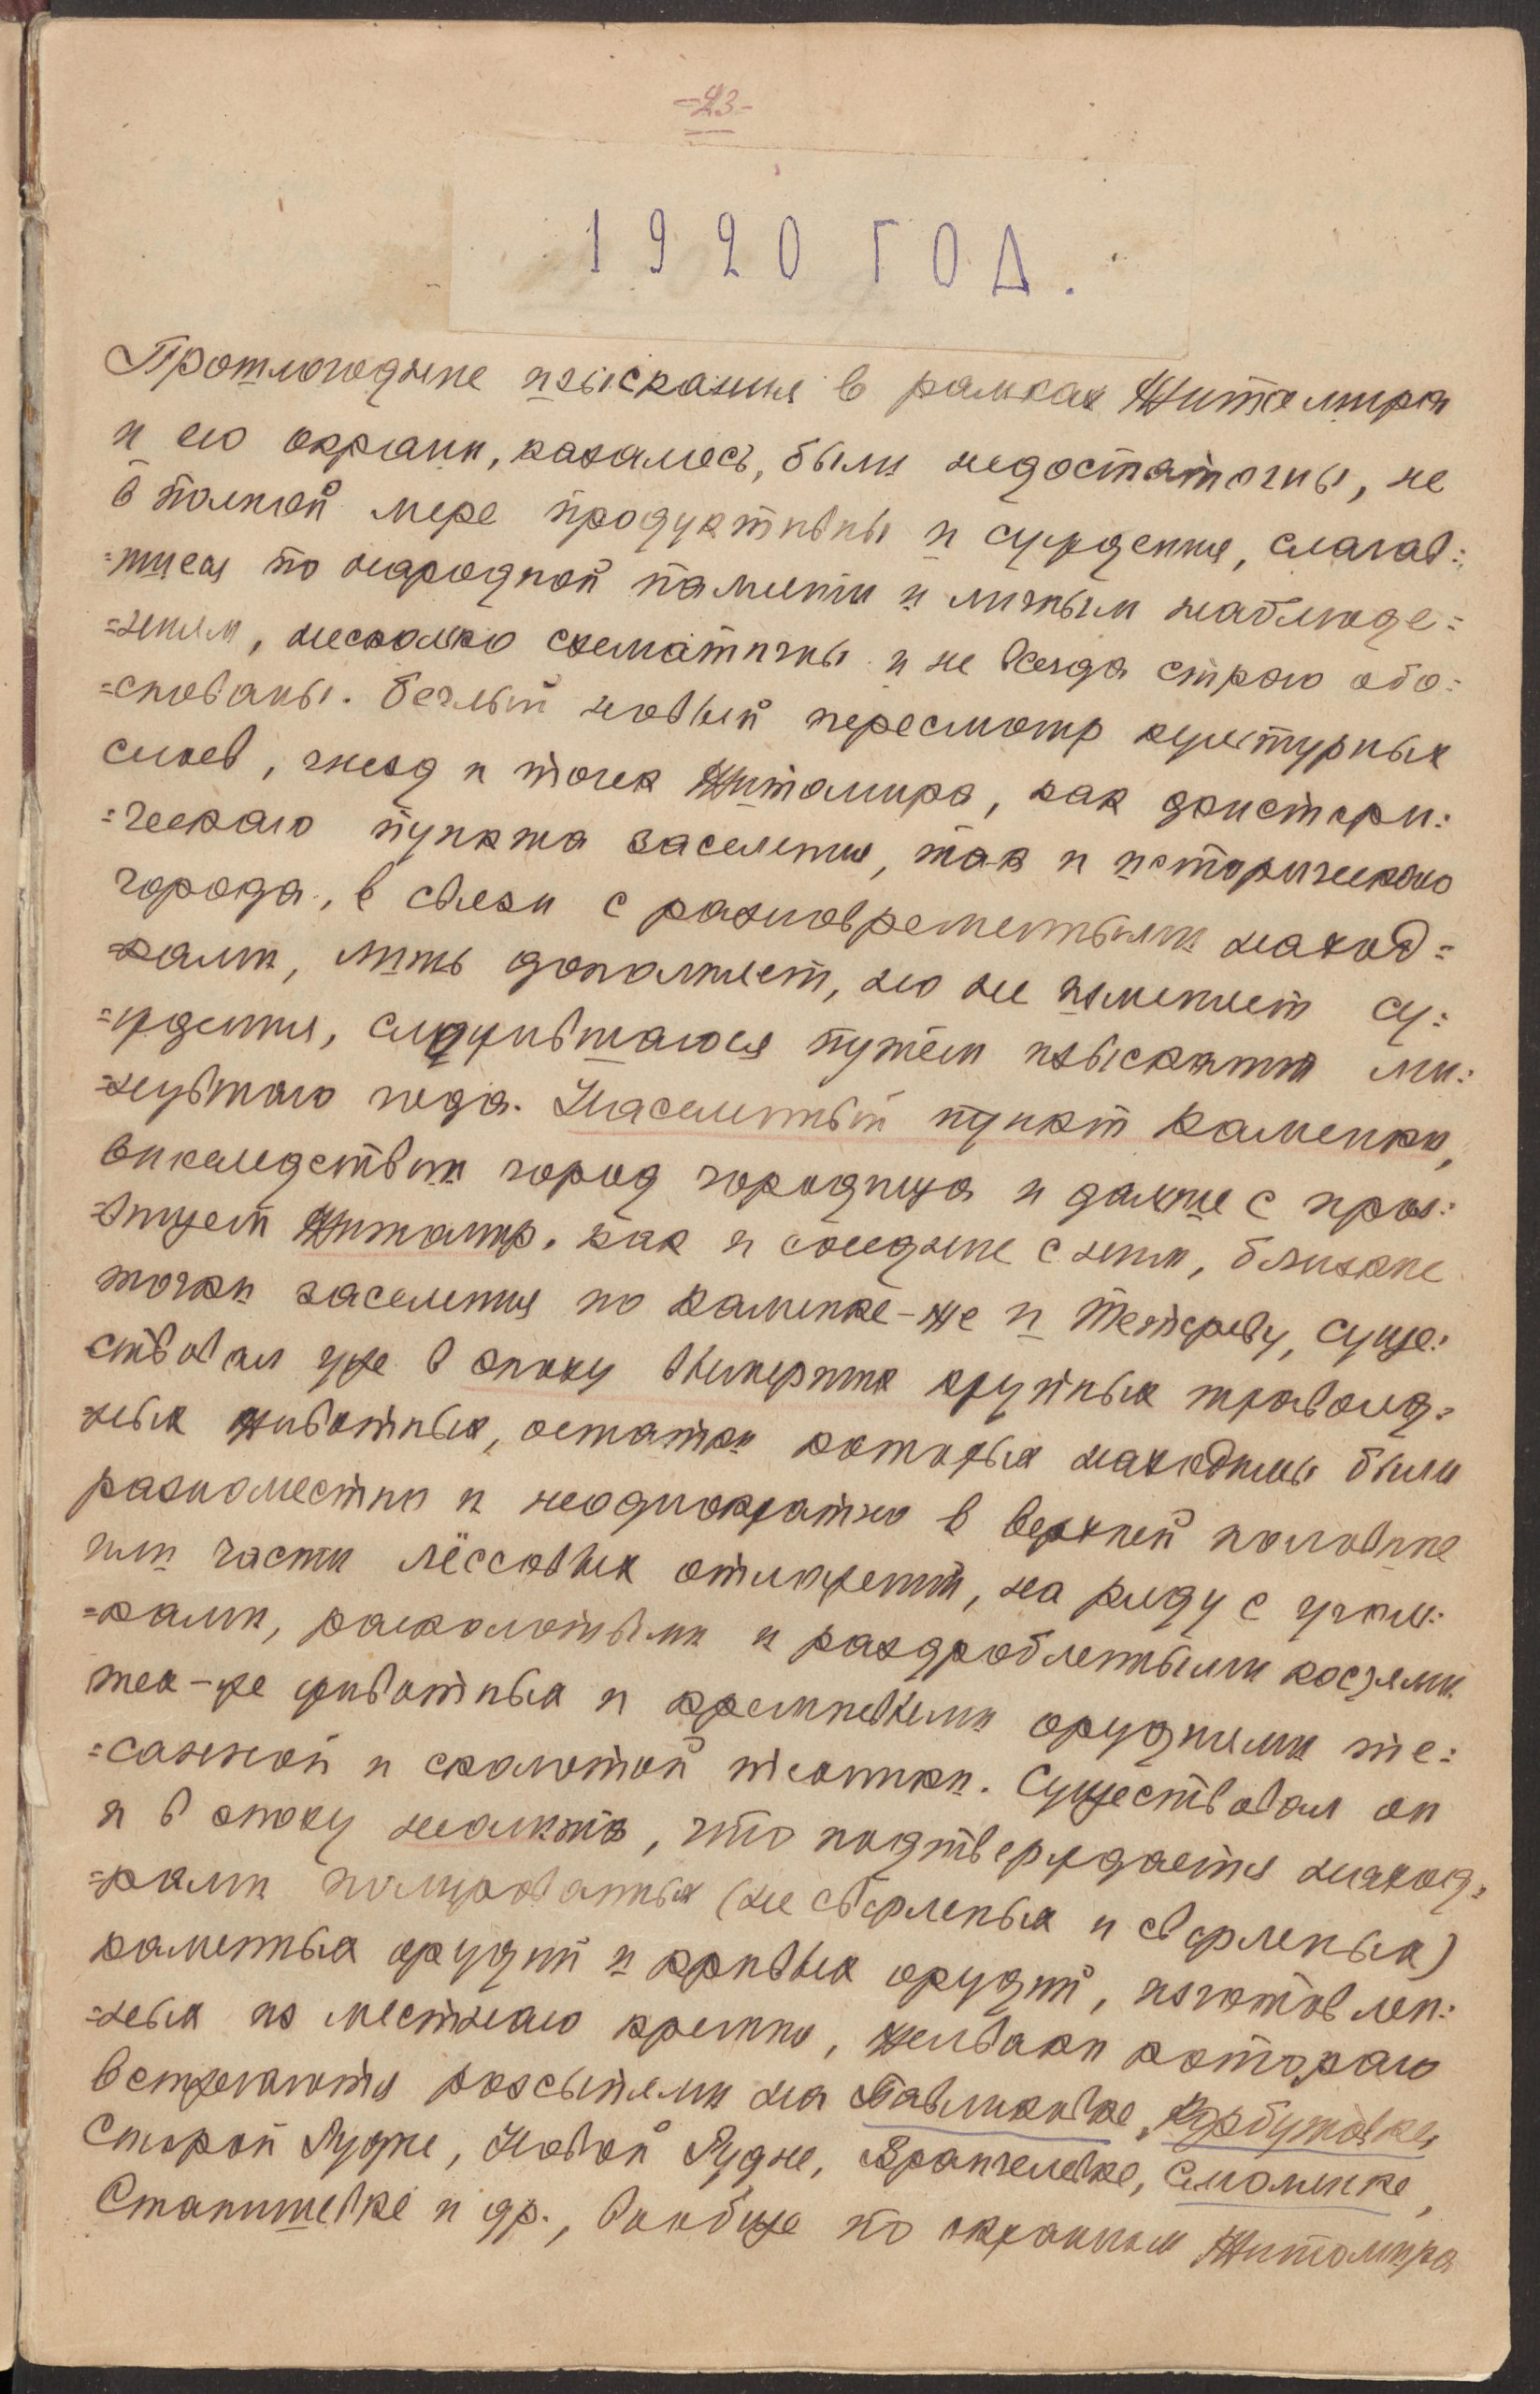 -23-
1920 ГОД.
Прошлогодние изыскания в рамках Житомира
и его окраин, казалось, были недостаточны, не
в полной мере продуктивны и суждения, слагав=
=шиеся по народной памяти и личным наблюде=
=ниям, несколько схематичны и не всегда строго обо=
=снованы. Беглый новый пересмотр культурных
слоев, гнезд и точек Житомира, как доистори=
=ческаго пункта заселения, так и историческаго
города, в связи с разновременными наход=
=ками, лишь дополняет, но не изменяет су=
=ждения, следившагося путём изысканий ми=
=нувшаго года. Населенный пункт Каменки,
впоследствии город городища и дальше с при=
=город Житомир, как и соседние с ним, близкие
точки заселения по Каменке-же и Тетереву, суще=
ствовал уже в эпоху вымерших крупных травояд=
ных животных, остатки которых находимы были
разноместно и неоднократно в верхней половине
или части лёссовых отложений, на ряду с уголь=
=ками, расколотыми и раздробленными костями
тех-же животных и кремневыми орудиями те=
=санной и сколотой техники. Существовал он
и в эпоху неолита, что подтверждается наход=
=ками полированных (не сверленых и сверленых)
каменных орудий и кривых орудий, изготовлен=
=ных из местнаго кремня, желваки котораго
встречаются россыпями на Павликовке, Корбутовке,
Старой Рудне, Новой Рудне, Врангелевке, Смолянке,
Станишевке и др., вообще по окраинам Житомира